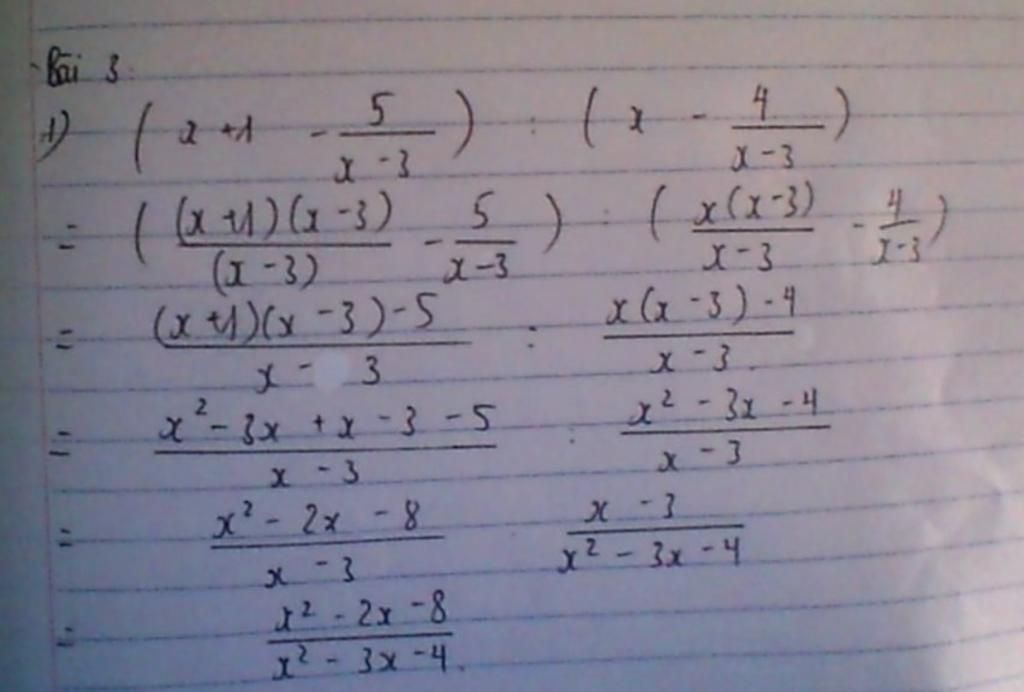 Bài 3:
1) ( x + 1 - 5/(x - 3) ) : ( x - 4/(x - 3) )
= ( (x + 1)(x - 3)/(x - 3) - 5/(x - 3) ) : ( x(x - 3)/(x - 3) - 4/(x - 3) )
= ((x + 1)(x - 3) - 5)/(x - 3) : (x(x - 3) - 4)/(x - 3)
= (x² - 3x + x - 3 - 5)/(x - 3) : (x² - 3x - 4)/(x - 3)
= (x² - 2x - 8)/(x - 3) (x - 3)/(x² - 3x - 4)
= (x² - 2x - 8)/(x² - 3x - 4).